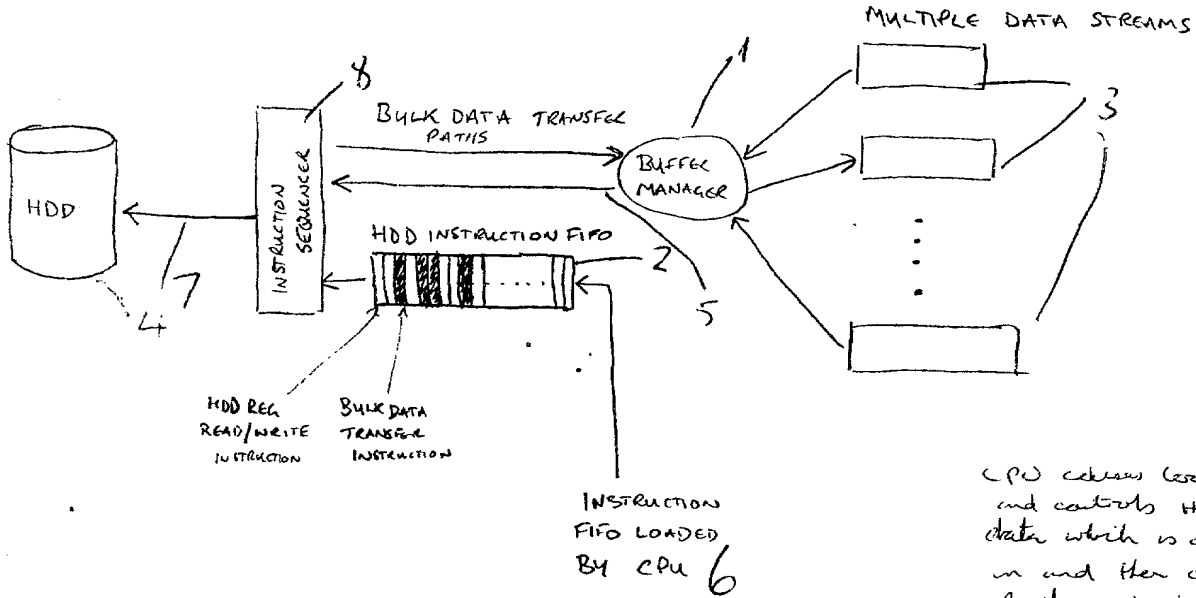 MULTIPLE DATA STREAMS
1
8
3
BULK DATA TRANSFER
PATHS
BUFFER
MANAGER
HDD
INSTRUCTION
SEQUENCER
HDD INSTRUCTION FIFO
2
5
4 7
HDD REG
READ/WRITE
INSTRUCTION
BULK DATA
TRANSFER
INSTRUCTION
INSTRUCTION
FIFO LOADED
BY CPU 6
CPU
and controls H
data which is
in and then